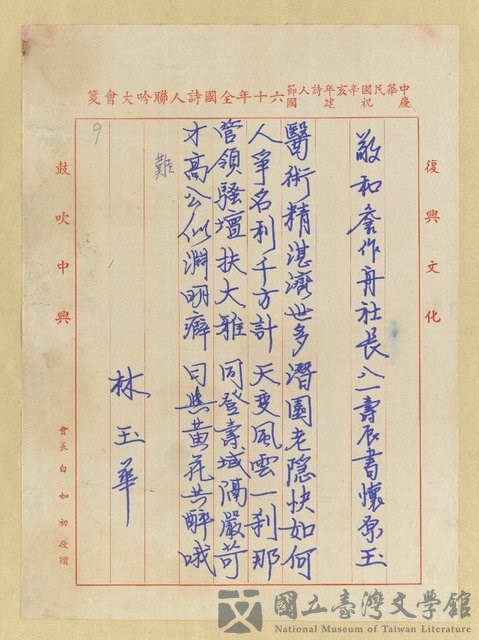 中華民國辛亥年詩人節
慶祝建國六十年全國詩人聯吟大會箋
復興文化
敬和詹作舟社長八一壽辰書懷原玉
醫術精湛濟世多潛園老隱快如何
人爭名利千方計天变風雲一剎那
管領騷壇扶大雅同登壽域隔嚴苛
才高公似淵明癖日與黃花共醉哦
難
林玉華
9
鼓吹中興
會長白如初敬贈
國立臺灣文學館
National Museum of Taiwan Literature